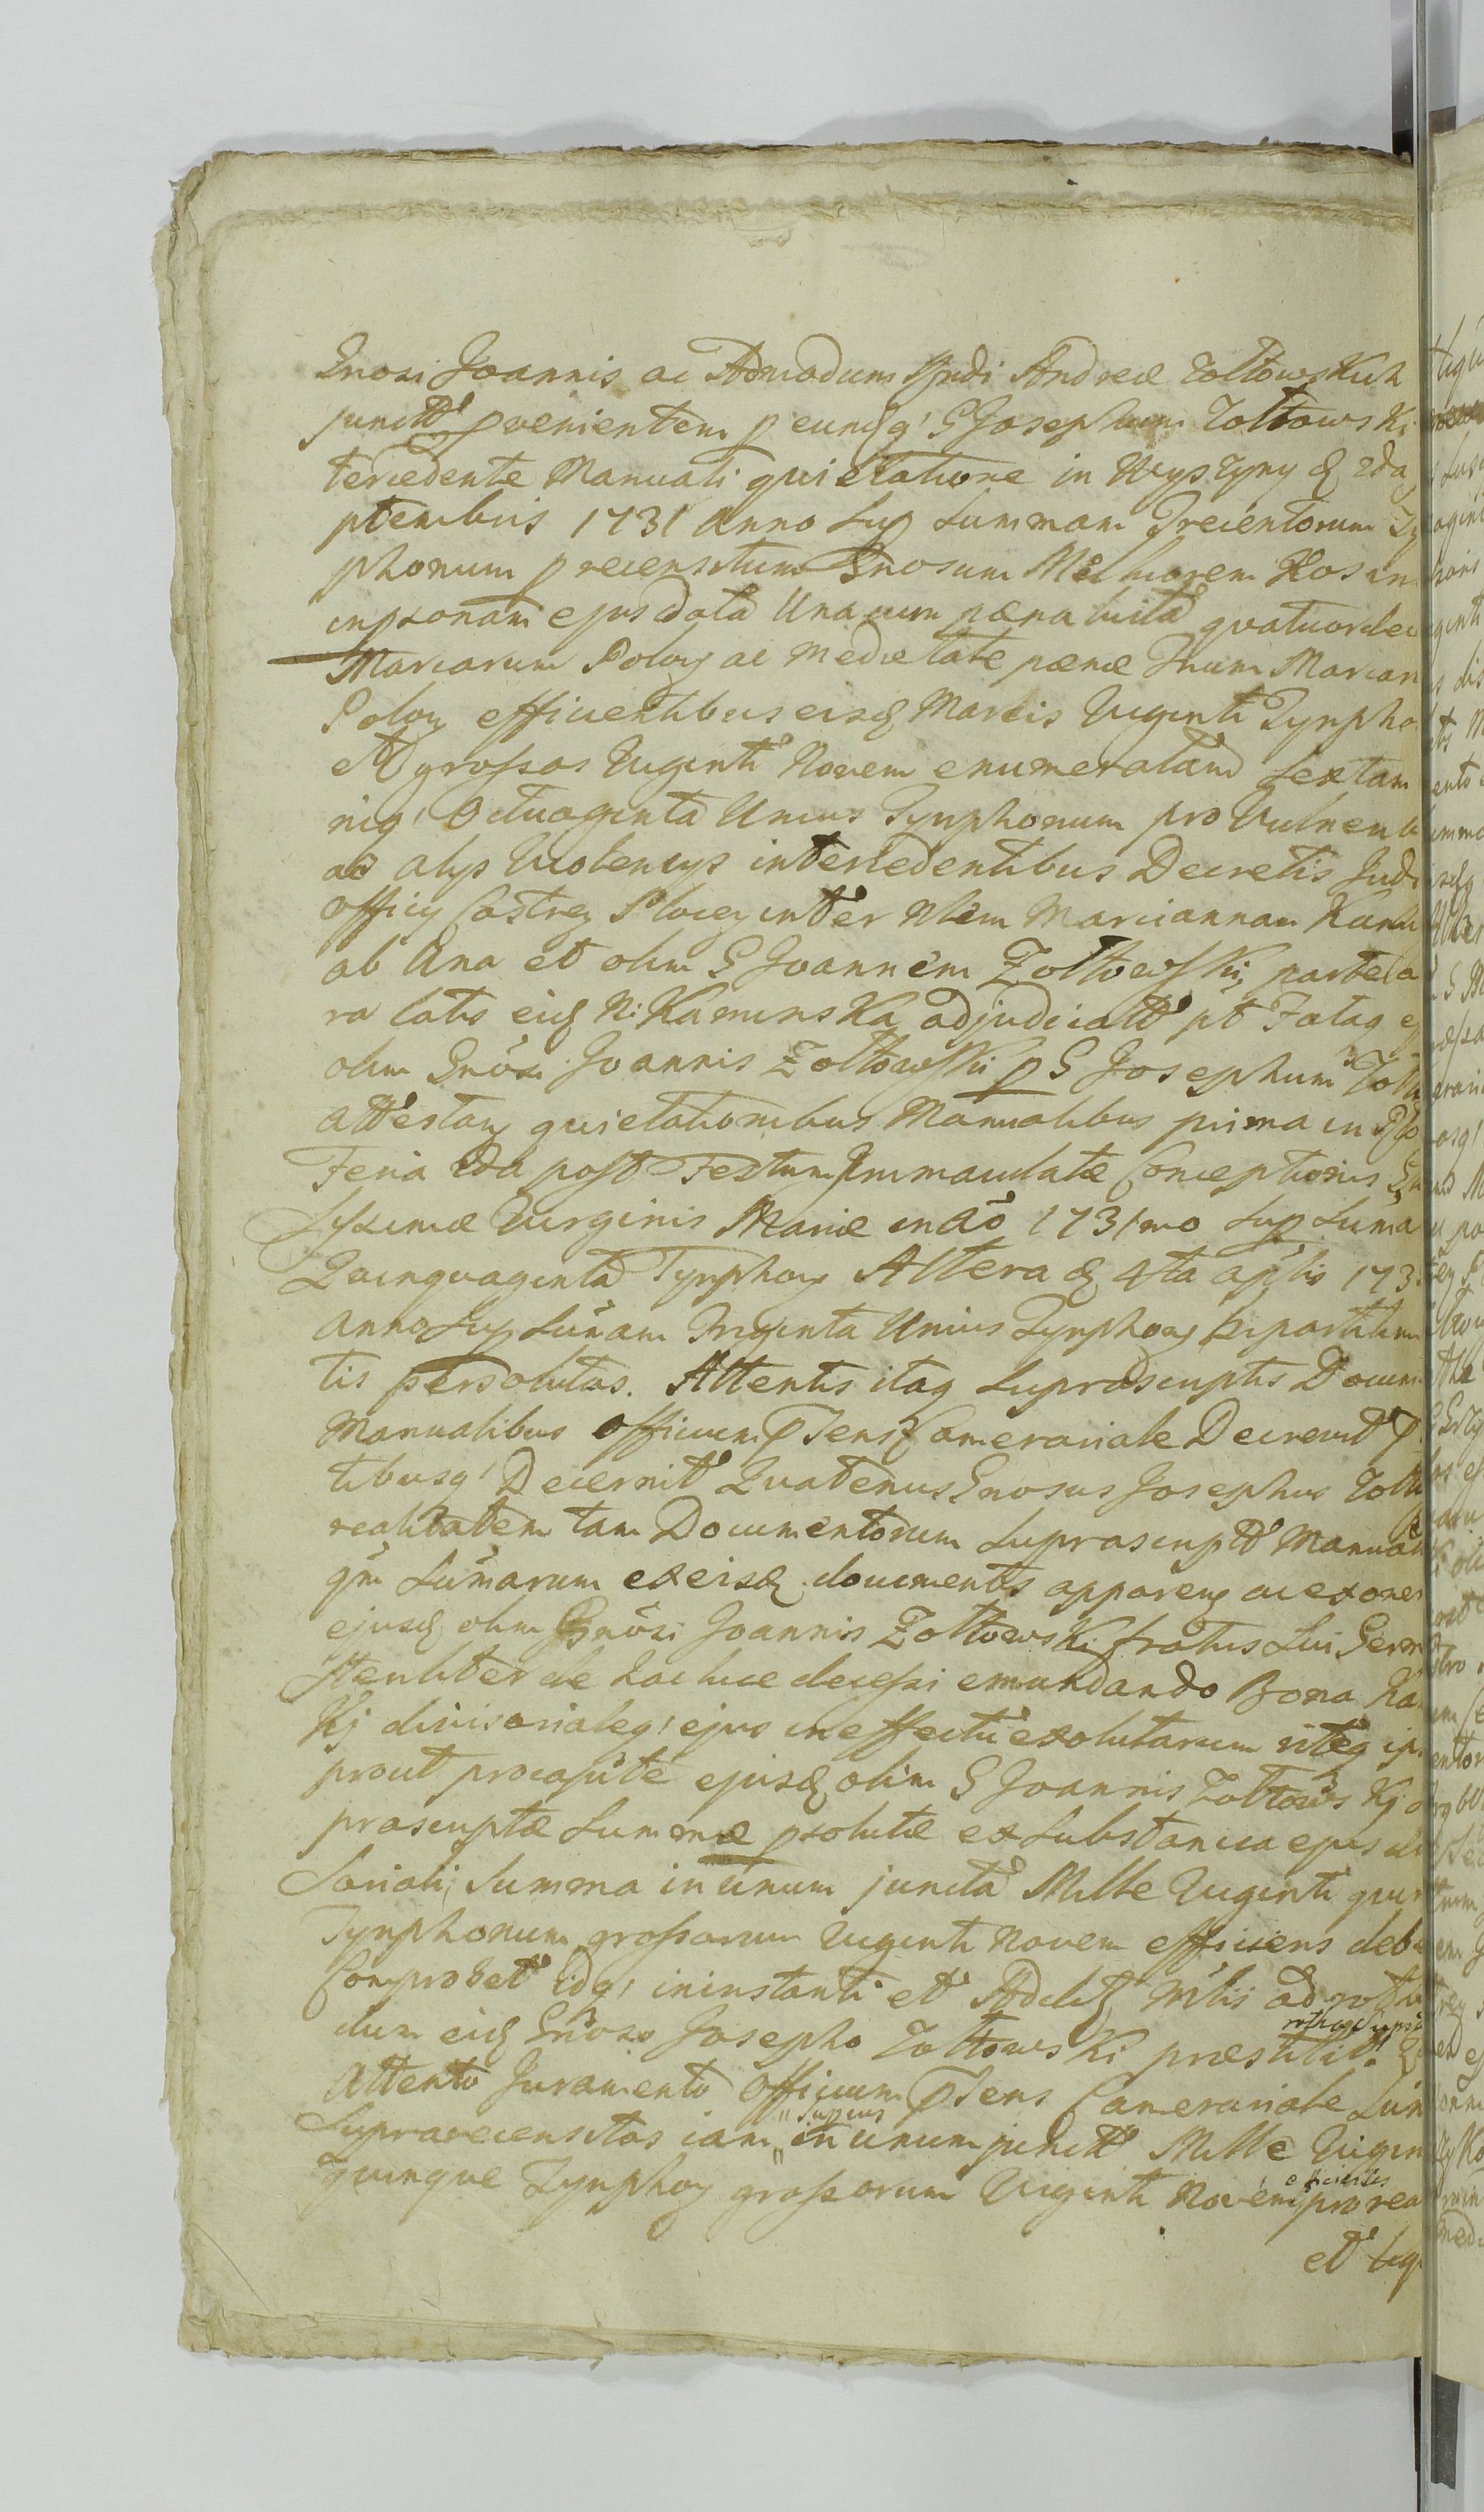 Gnosi Joannis ac Admodum Rndi Andreæ Zołtowskich
junctt provenientem p eundq' G Josephum Zołtowski
tercedente Manuali quietatione in Wyszyny d 2da
ptembris 1731 Anno Sup Summam Trecentorum Ty
phonum p recensitum Gnosum Melhiorem Kos in
inpsonam ejus data Una cum pæna luita quatuordec
Marcarum Polog ac medietate pænæ Trium Marcar
Polog efficientibus eisd Marcis Viginti Tynpho
et grossos Viginti Novem enumeratand Sextam
niq' Octuaginta Unius Tynphonum pro Vulnerib
ac alys Violencys intercedentibus Decretis Judi
officy Castren Plocen inter Nlem Mariannam Kami
ab Una et olim G Joannem Zołtowski, parte a
ra latis eid N: Kaminska adjudicatt pt Fatag ej
olim Gnosi Joannis Zołtowski p G Josephum Zołto
attestan quietationibus Manualibus prima in Plo
Feria 2da post Festum Immaculatæ Conceptionis
Ssimæ Virginis Mariæ in Ao 1731mo Sup Suma
Quinquaginta Tynphon Altera d 4ta aplis 173
Anno Sup Sumam Triginta Unius Tynphon bipartitim
tis persolutas. Attentis itaq Suprascriptis Docum
Manualibus officium psens Camerariale Decrevit P
tibusq' Decernit Quatenus Gnosus Josephus Zołto
realitatem tam Documentorum Suprascriptt Manual
qm Sumarum ex eisd documentis apparen ac ex one
ejusd olim Gnosi Joannis Zołtowski fratris Sui Germ
steriliter de hac luce decessi emundando Bona Ka
kj divisorialeq' ejus in effectu exolutarum riteq ip
prout pro capite ejusd olim G Joannis Zołtowskj
prascriptæ Summæ psolutæ ex Substancia ejus di
Soriali, Summa in unum juncta Mille Viginti quin
Tynphonum grossorum Viginti Novem efficiens deb
Comprobet idq' in instanti et Addtd Mlis ad roth
dum eid Gnoso Josepho Zołtowski præstitit.
rothage supra
Attento Juramento officium pSens Camerariale Sum
Suprarecensitas iam "in unum junctt Mille Vigin
"Supius
quinque Tynphon grossorum Viginti Novem pro rea
efficientes
et liq